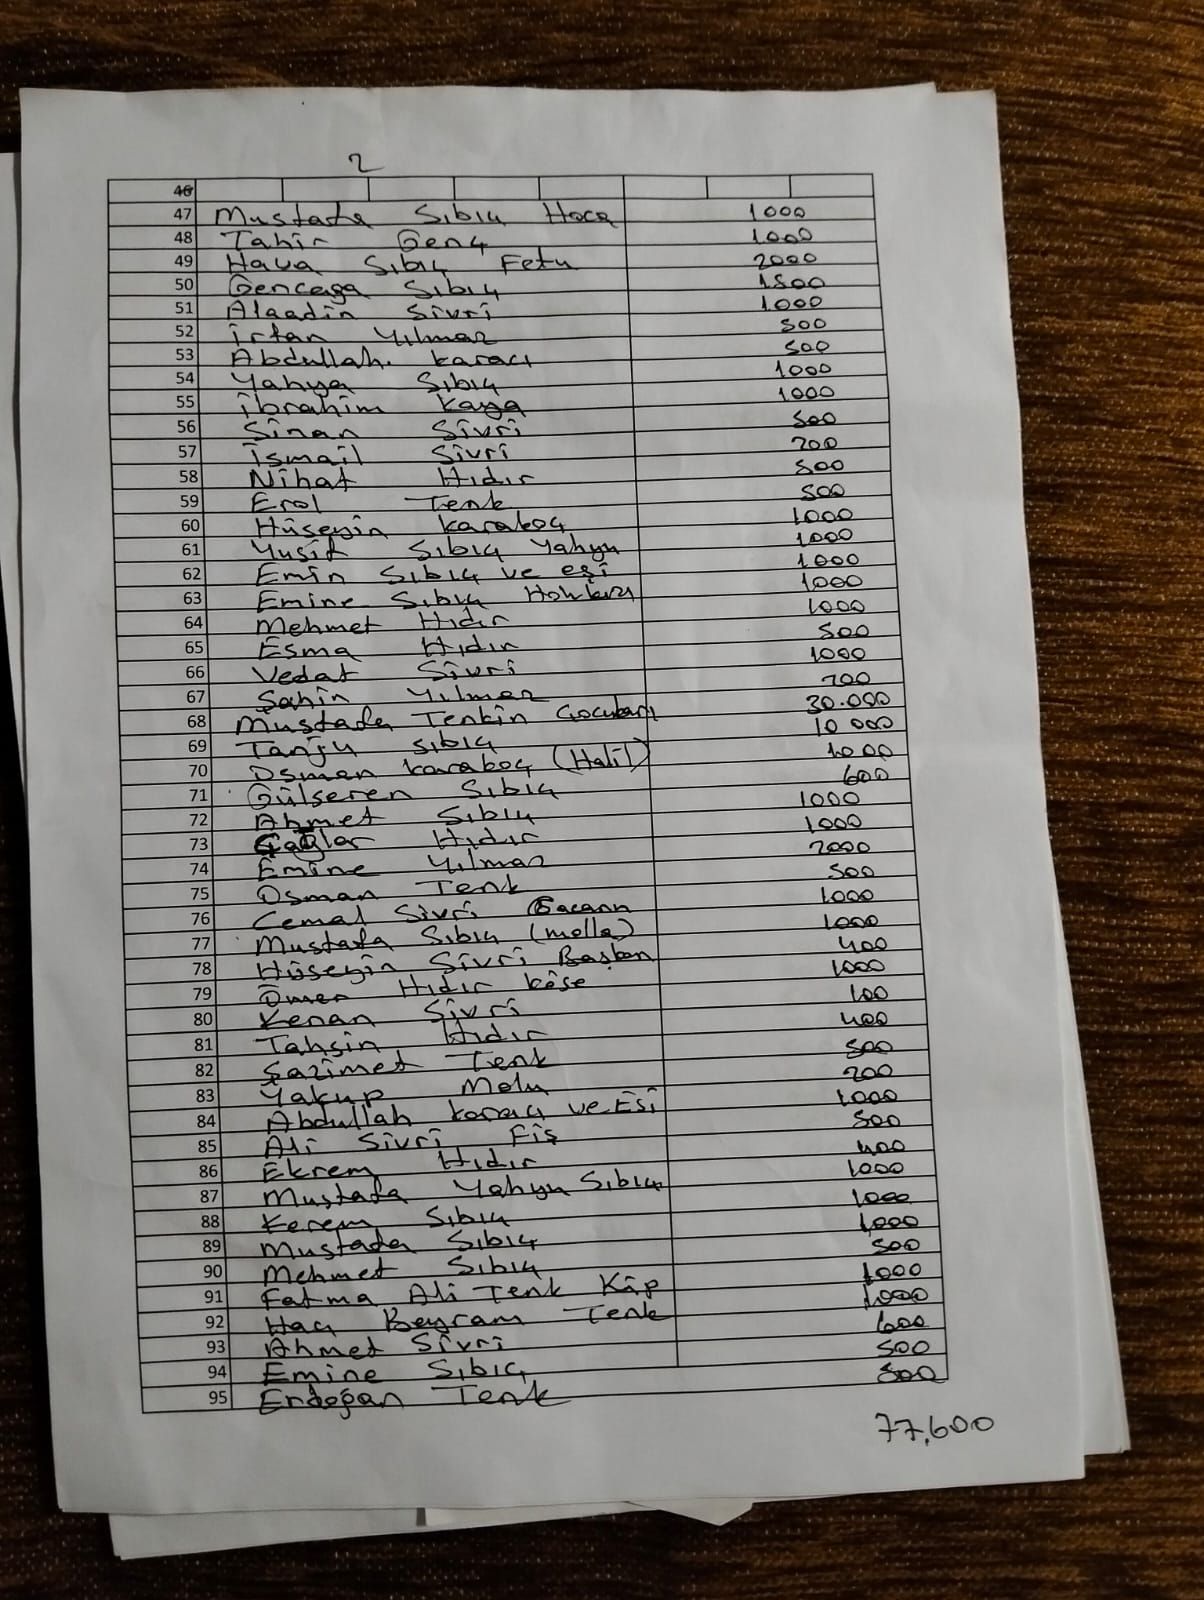 2
46
47 Mustafa Sıbıç Hoca 1000
48 Tahir Genç 1000
49 Hava Sıbıç Fetu 2000
50 Gencaga Sıbıç 1500
51 Alaadin Sivri 1000
52 İrfan Yılmaz 500
53 Abdullah Karacı 500
54 Yahya Sıbıç 1000
55 İbrahim Kaya 1000
56 Sinan Sivri 500
57 İsmail Sivri 200
58 Nihat Hıdır 500
59 Erol Tenk 500
60 Hüseyin Karakoç 1000
61 Yusif Sıbıç Yahyu 1000
62 Emin Sıbıç ve eşi 1000
63 Emine Sıbıç 1000
64 Mehmet Hıdır 1000
65 Esma Hıdır 500
66 Vedat Sivri 1000
67 Şahin Yılmaz 200
68 Mustafa Tenkin Çocukları 30.000
69 Tanju Sıbıç 10 000
70 Osman Karakoç (Halil) 1000
71 Gülseren Sıbıç 600
72 Ahmet Sıbıç 1000
73 Çağlar Hıdır 1000
74 Emine Yılmaz 2000
75 Osman Tenk 500
76 Cemal Sivri 1000
77 Mustafa Sıbıç (molla) 1000
78 Hüseyin Sivri Başkan 400
79 Ömer Hıdır Köse 1000
80 Kenan Sivri 100
81 Tahsin Hıdır 400
82 Şazimet Tenk 500
83 Yakup 200
84 Abdullah Karacı ve Eşi 1000
85 Ali Sivri Fiş 500
86 Ekrem Hıdır 400
87 Mustafa Yahyu Sıbıç 1000
88 Kerem Sıbıç 1000
89 Mustafa Sıbıç 1000
90 Mehmet Sıbıç 500
91 Fatma Ali Tenk Kâp 1000
92 Hacı Bayram Tenk 1000
93 Ahmet Sivri 600
94 Emine Sıbıç 500
95 Erdoğan Tenk 500
77,600